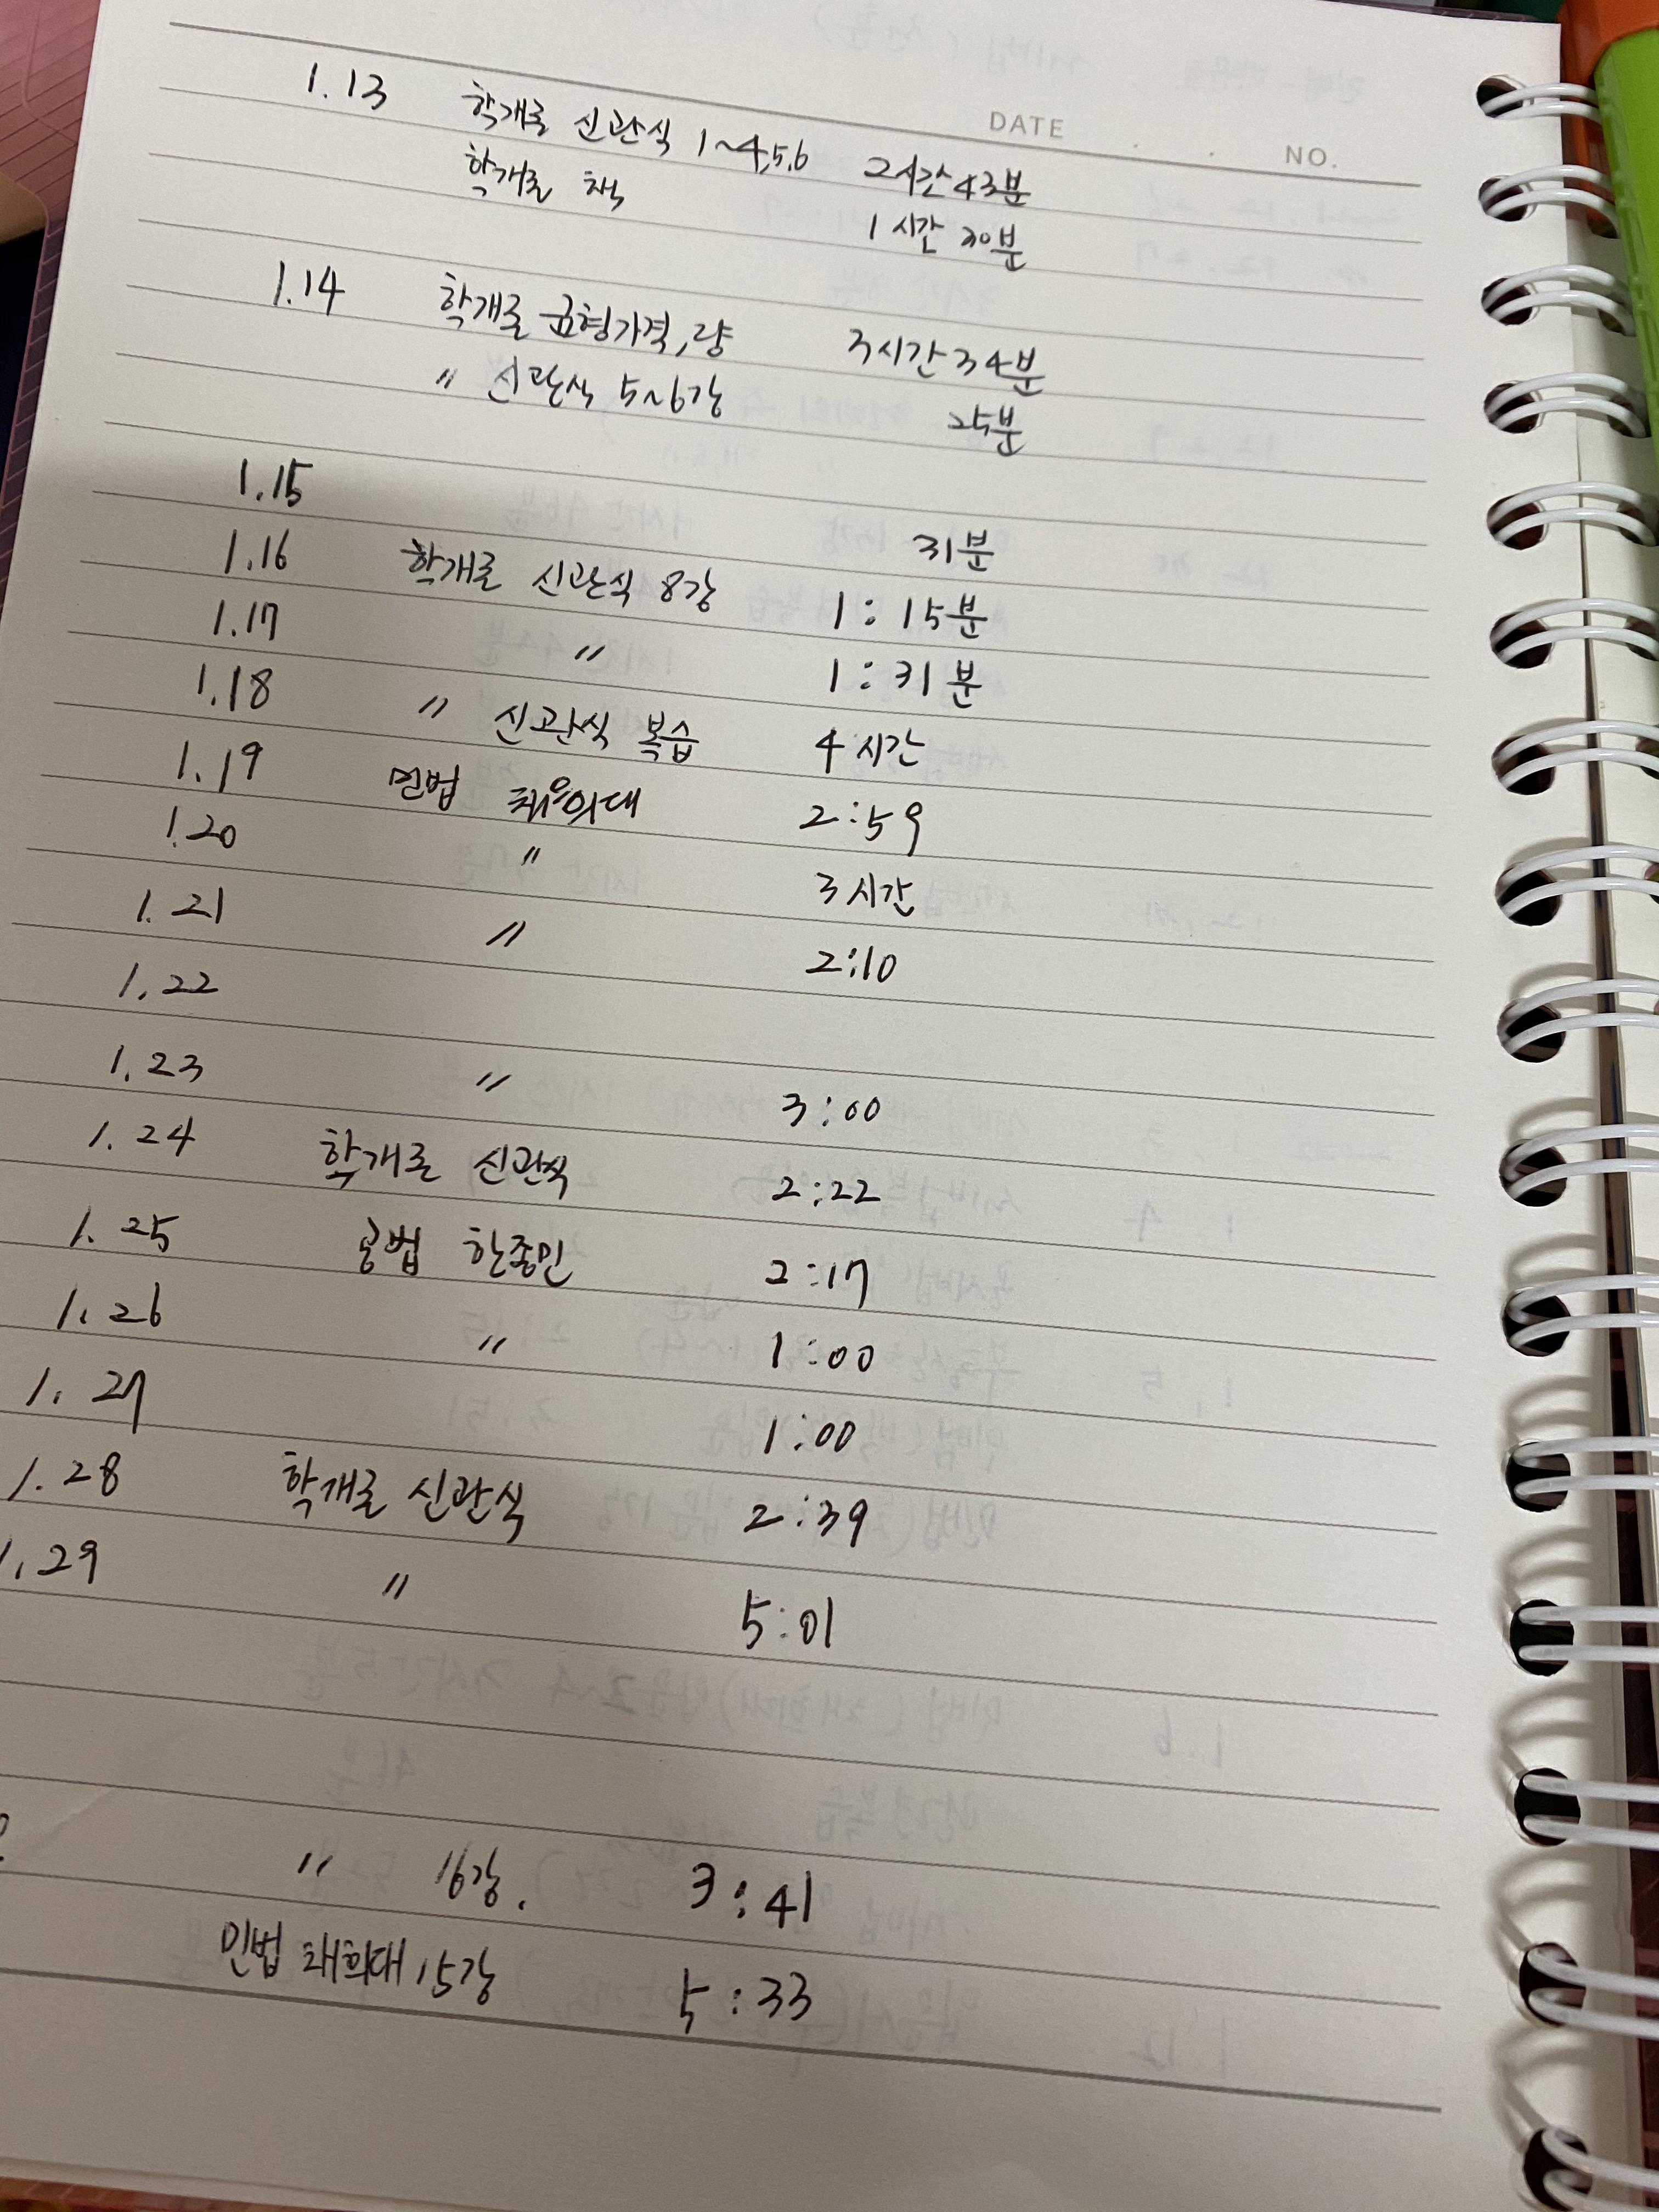 DATE . . NO.
1.13 학개론 신관식 1~4,5,6 2시간 43분
학개론 책 1시간 30분
1.14 학개론 균형가격,량 3시간 34분
〃 신관식 5~6강 25분
1.15 31분
1.16 학개론 신관식 8강 1:15분
1.17 〃 1:31분
1.18 〃 신관식 복습 4시간
1.19 민법 채희대 2:59
1.20 〃 3시간
1.21 〃 2:10
1.22
1.23 〃 3:00
1.24 학개론 신관식 2:22
1.25 공법 한종민 2:17
1.26 〃 1:00
1.27 1:00
1.28 학개론 신관식 2:39
1.29 〃 5:01
〃 16강. 3:41
민법 채희대 15강 5:33